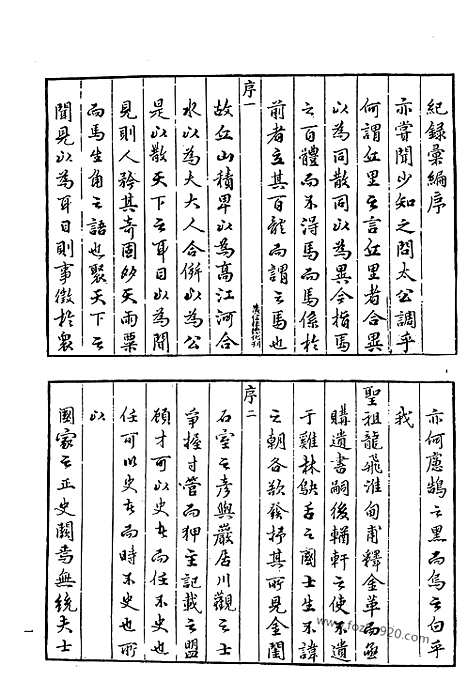 紀録彙編序
亦嘗聞少知之問太公調乎
何謂丘里之言丘里者合異
以為同散同以為異今指馬
之百體而不得馬而馬係於
前者立其百體而謂之馬也
序一
故丘山積卑以為高江河合
水以為大大人合併以為公
是以散天下之耳目以為聞
見則人矜其奇固天雨粟
而馬生角之語也聚天下之
聞見以為耳目則事徵於衆
亦何慮鵠之黑而烏之白乎
我
聖祖龍飛淮甸甫釋金革而亟
購遺書嗣後輶軒之使不遺
于雞林鴃舌之國士生不諱
之朝各欲發抒其所見金閨
序二
石室之彥與巖居川觀之士
爭握寸管而狎主記載之盟
顧才可以史者而任不史也
任可以史者而時不史也所
以
國家之正史闕焉無統夫士
一